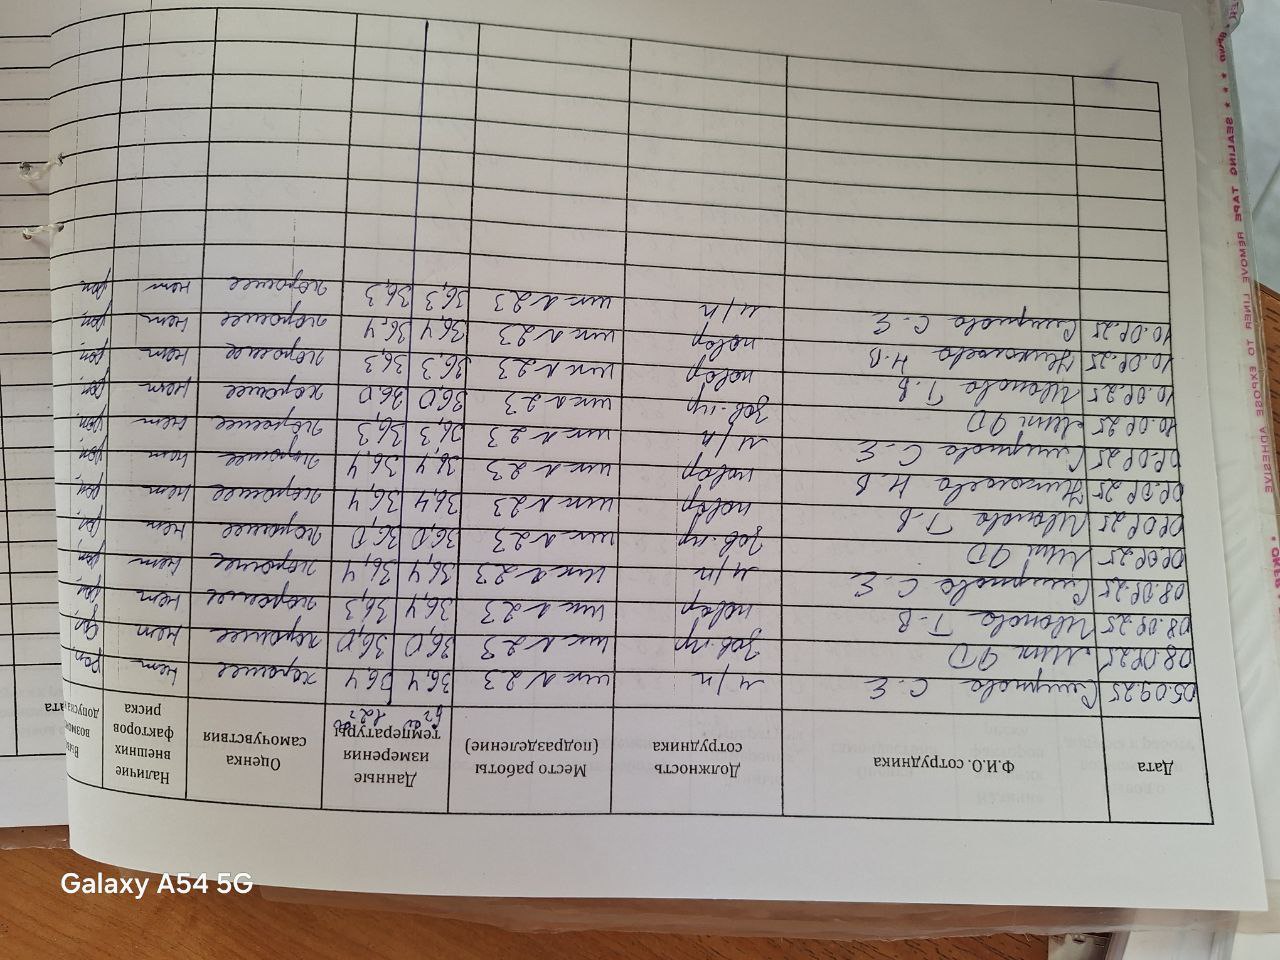 Дата Ф.И.О. сотрудника Должность сотрудника Место работы (подразделение) Данные измерения температуры Оценка самочувствия Наличие внешних факторов риска
05.09.25 Смирнова С.Е м/п шк N 23 36,4 36,4 хорошее нет доп
08.09.25 зав.пр шк N 23 36,0 36,0 хорошее нет доп
08.09.25 Иванова Т.В повар шк N 23 36,4 36,3 хорошее нет доп
08.09.25 Смирнова С.Е м/п шк N 23 36,4 36,4 хорошее нет доп
09.09.25 зав.пр шк N 23 36,0 36,0 хорошее нет доп
09.09.25 Иванова Т.В повар шк N 23 36,4 36,4 хорошее нет доп
09.09.25 Николаева Н.В повар шк N 23 36,4 36,4 хорошее нет доп
09.09.25 Смирнова С.Е м/п шк N 23 36,3 36,3 хорошее нет доп
10.09.25 зав.пр шк N 23 36,0 36,0 хорошее нет доп
10.09.25 Иванова Т.В повар шк N 23 36,3 36,3 хорошее нет доп
10.09.25 Николаева Н.В повар шк N 23 36,4 36,4 хорошее нет доп
10.09.25 Смирнова С.Е м/п шк N 23 36,3 36,3 хорошее нет доп
SEALING TAPE REMOVE LINER TO EXPOSE ADHESIVE
Galaxy A54 5G